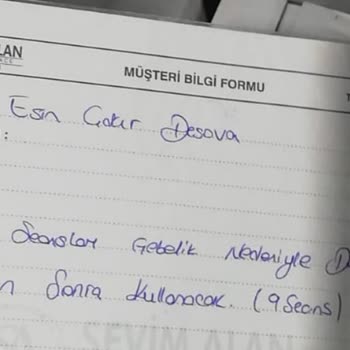 LAN
MÜŞTERİ BİLGİ FORMU
Esin Çakır Desova
:
Seanslar Gebelik Nedeniyle D
n Sonra Kullanacak. (9 Seans)
SEVİM ALAN